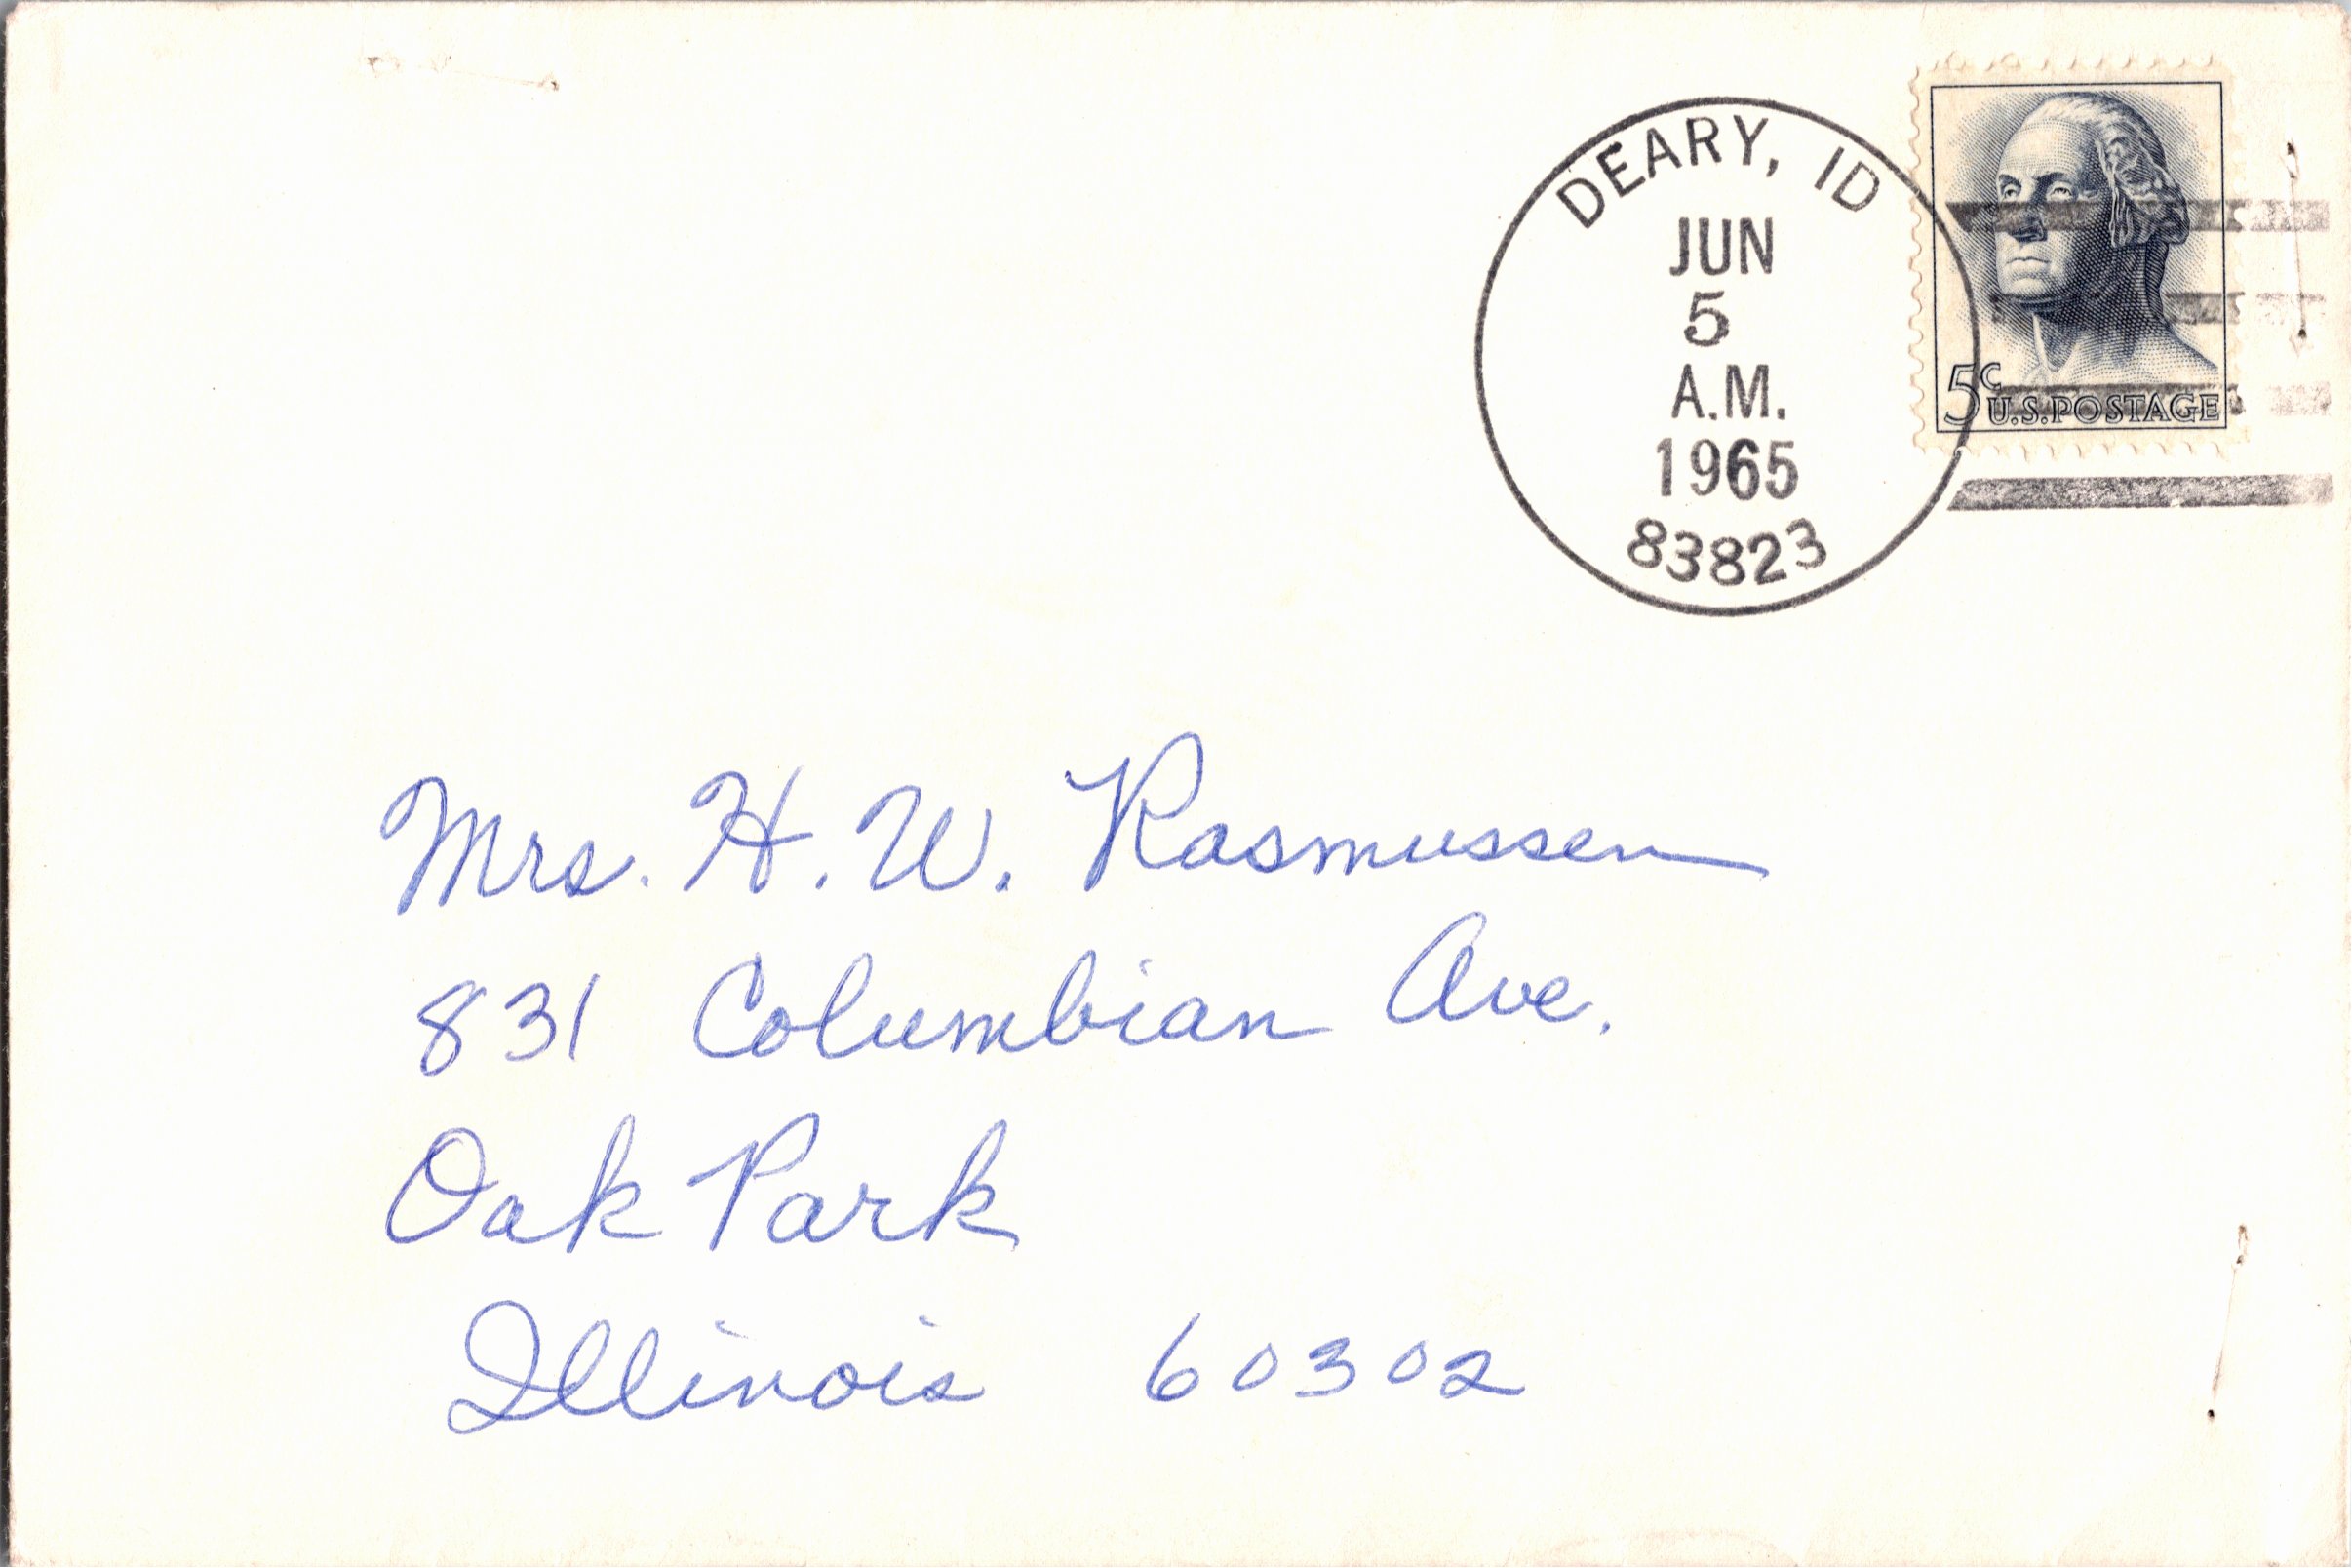 DEARY, ID
JUN
5
A.M.
1965
83823
5c U.S. POSTAGE
Mrs. H. W. Rasmussen
831 Columbian Ave.
Oak Park
Illinois 60302